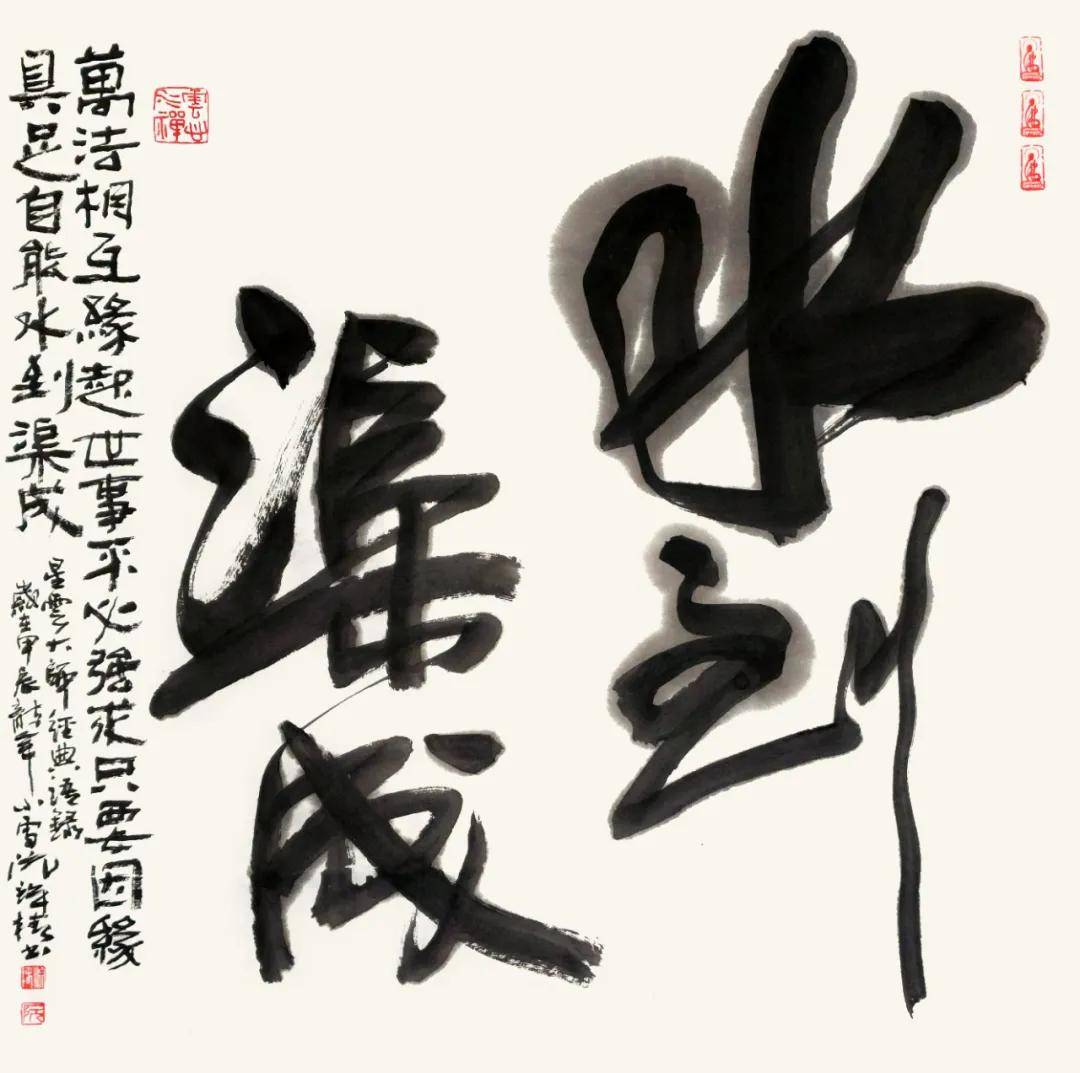 水到
渠成
萬法相互緣起世事不必強求只要因緣
具足自能水到渠成
星雲大師經典語錄
歲在甲辰龍年小雪